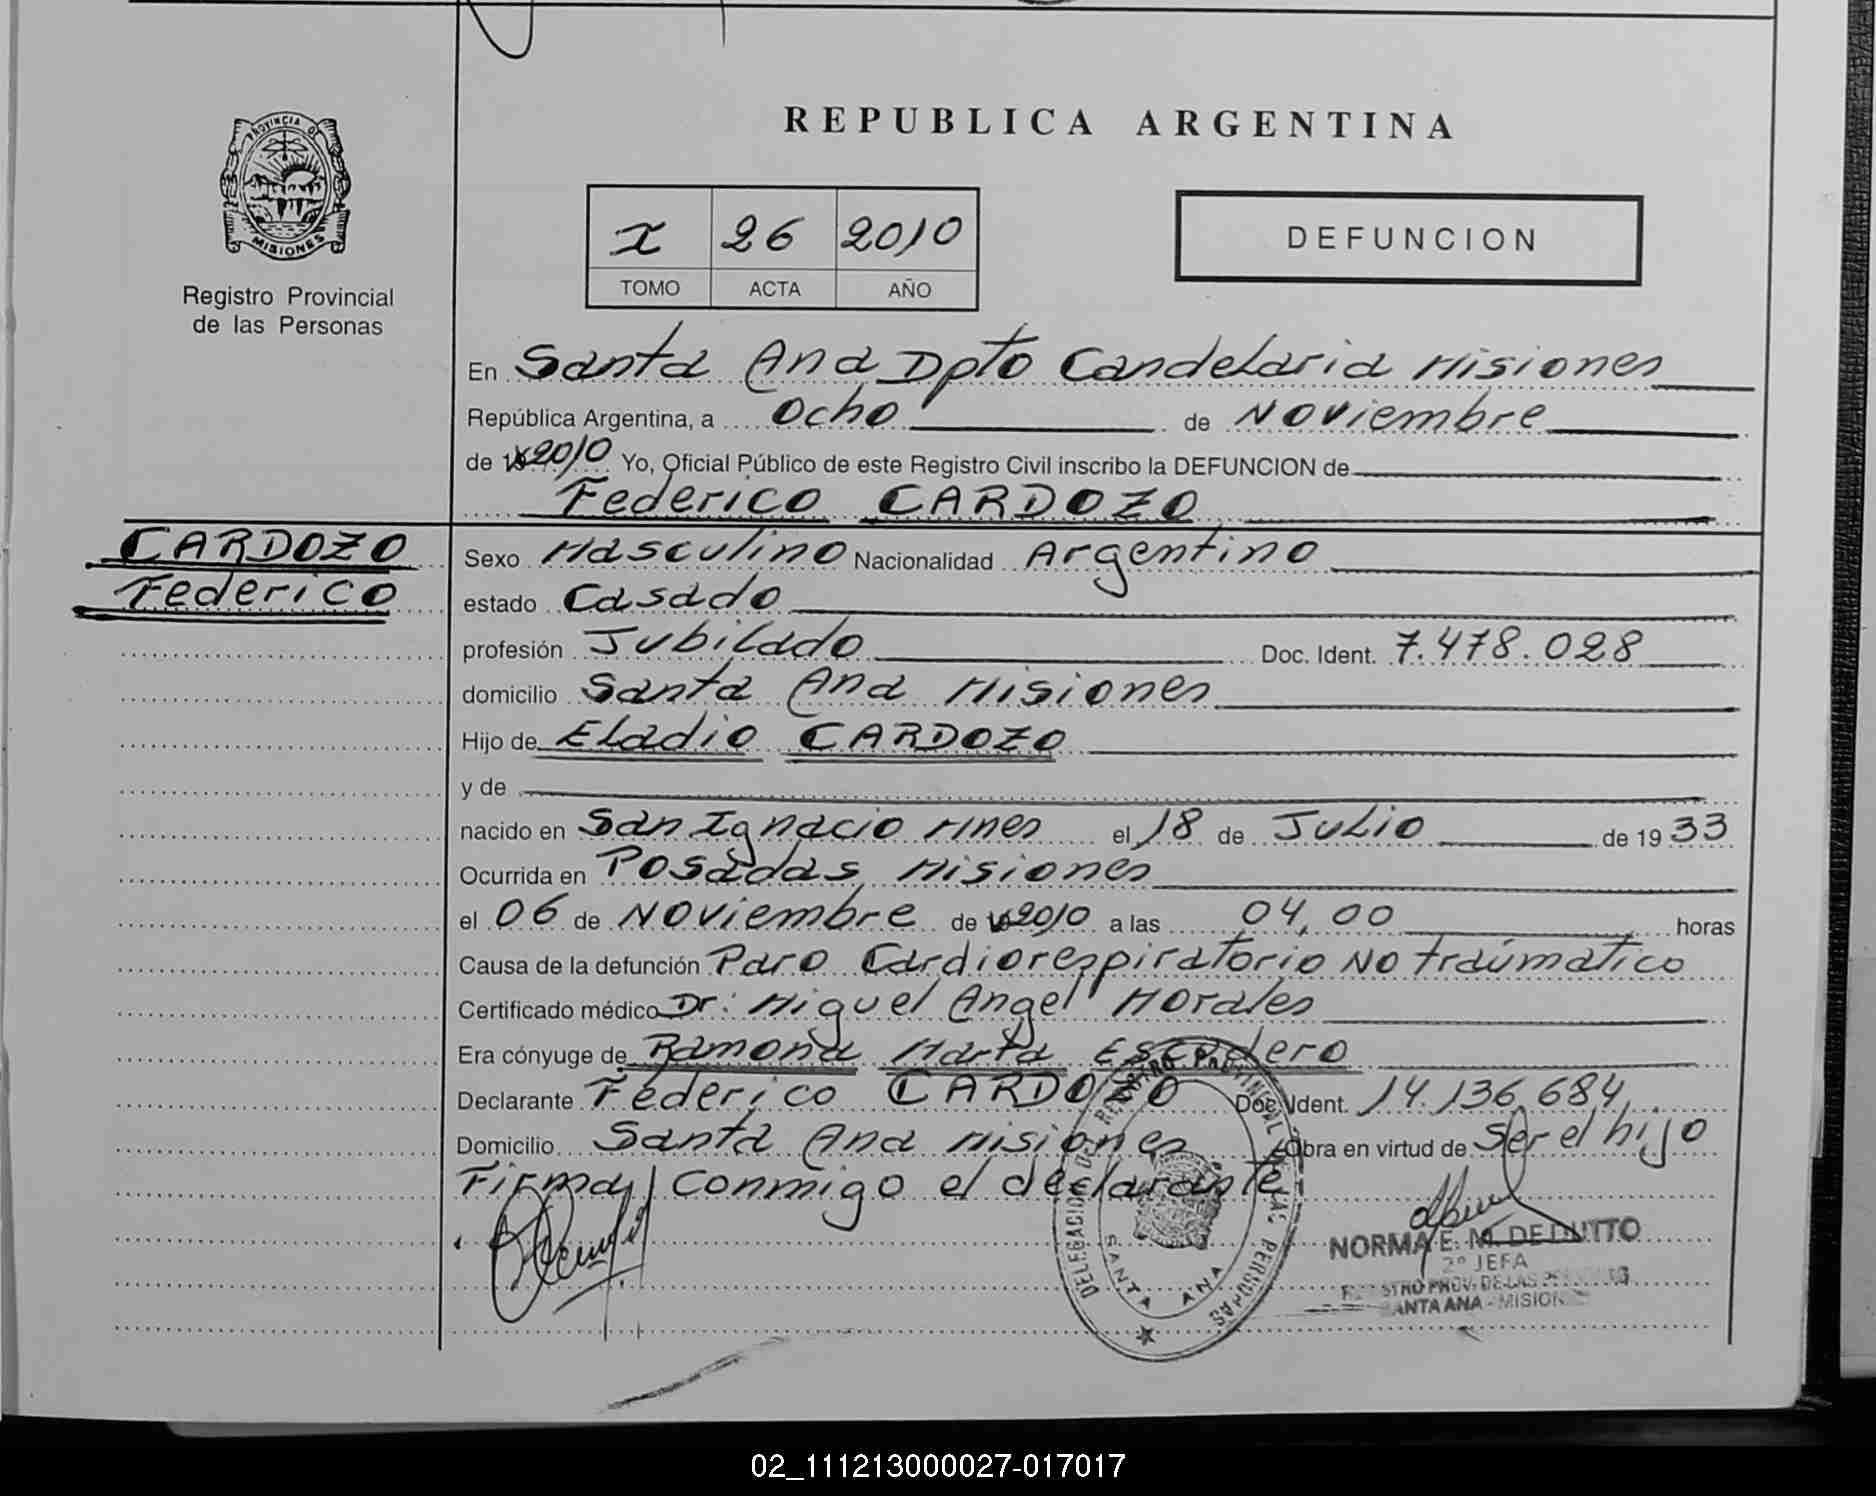 REPUBLICA ARGENTINA
PROVINCIA DE
MISIONES
Registro Provincial
de las Personas
I 26 2010
TOMO ACTA AÑO
DEFUNCION
En Santa Ana Dpto Candelaria Misiones
República Argentina, a Ocho de Noviembre
de 19 2010 Yo, Oficial Público de este Registro Civil inscribo la DEFUNCION de
Federico CARDOZO
CARDOZO
Federico
Sexo Masculino Nacionalidad Argentino
estado Casado
profesión Jubilado Doc. Ident. 7.478.028
domicilio Santa Ana Misiones
Hijo de Eladio CARDOZO
y de
nacido en San Ignacio Mnes el 18 de Julio de 1933
Ocurrida en Posadas Misiones
el 06 de Noviembre de 2010 a las 04,00 horas
Causa de la defunción Paro Cardiorespiratorio No traúmatico
Certificado médico Dr: Miguel Angel Morales
Era cónyuge de Ramona Marta Escudero
Declarante Federico CARDOZO Doc. Ident. 14.136.684
Domicilio Santa Ana Misiones Obra en virtud de Ser el hijo
Firma Conmigo el declarante
DELEGACION DEL REGISTRO PROVINCIAL DE LAS PERSONAS
SANTA ANA
NORMA E. M. DE DUTTO
2º JEFA
REGISTRO PROV. DE LAS PERSONAS
SANTA ANA - MISIONES
02_111213000027-017017